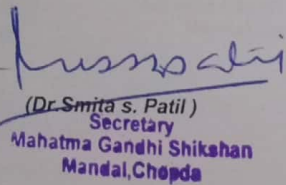 (Dr.Smita s. Patil )
Secretary
Mahatma Gandhi Shikshan
Mandal,Chopda